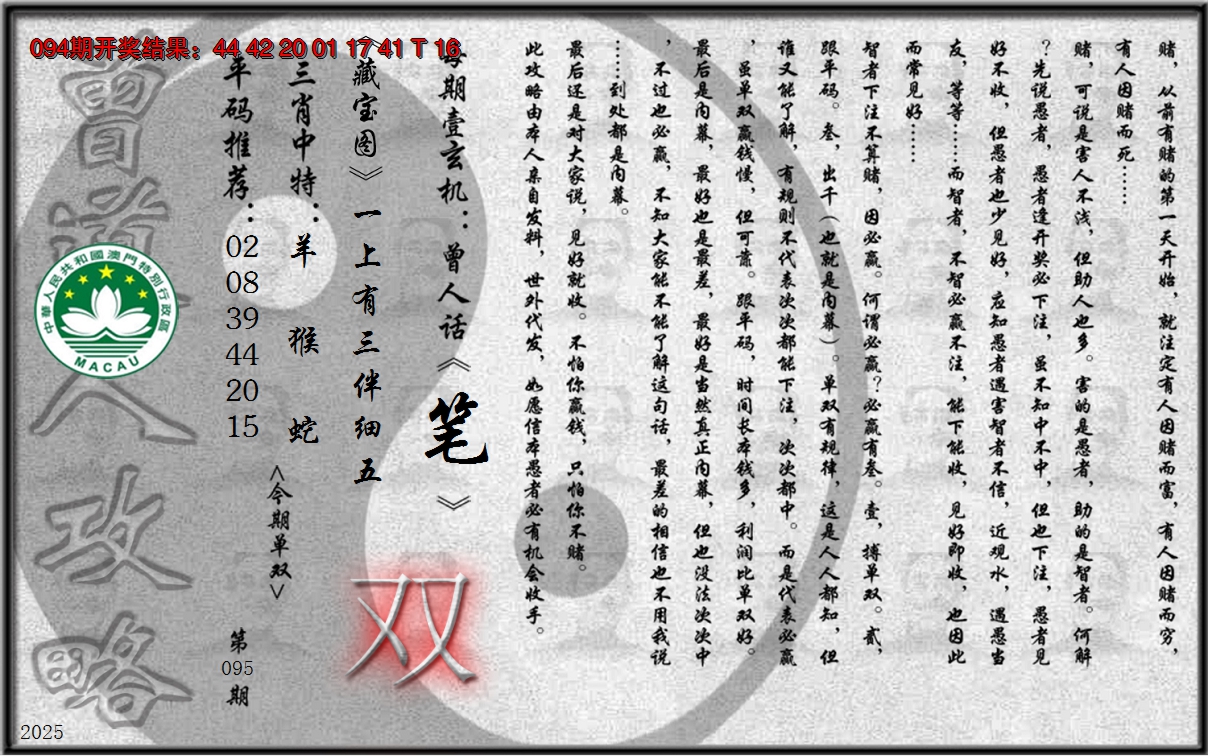 094期开奖结果：44 42 20 01 17 41 T 16
赌，从前有赌的第一天开始，就注定有人因赌而富，有人因赌而穷，
有人因赌而死……
赌，可说是害人不浅，但助人也多。害的是愚者，助的是智者。何解
？先说愚者，愚者逢开奖必下注，虽不知中不中，但也下注，愚者见
好不收，但愚者也少见好，应知愚者遇害智者不信，近观水，遇愚当
友，等等……而智者，不智必赢不注，能下能收，见好即收，也因此
而常见好……
智者下注不算赌，因必赢。何谓必赢？必赢有叁。壹，搏单双。贰，
跟平码。叁，出千（也就是内幕）。单双有规律，这是人人都知，但
谁又能了解，有规则不代表次次都能下注，次次都中。而是代表必赢
，虽单双赢钱慢，但可靠。跟平码，时间长本钱多，利润比单双好。
最后是内幕，最好也是最差，最好是当然真正内幕，但也没法次次中
，不过也必赢，不知大家能不能了解这句话，最差的相信也不用我说
……到处都是内幕。
最后还是对大家说，见好就收。不怕你赢钱，只怕你不赌。
此攻略由本人亲自发料，世外代发，如愿信本愚者必有机会收手。
每期壹玄机：曾人话《笔》
《藏宝图》一上有三伴细五
三肖中特：羊 猴 蛇
平码推荐：02 08 39 44 20 15
<今期单双>
双
第095期
曾道人攻略
中華人民共和國澳門特別行政區
MACAU
2025